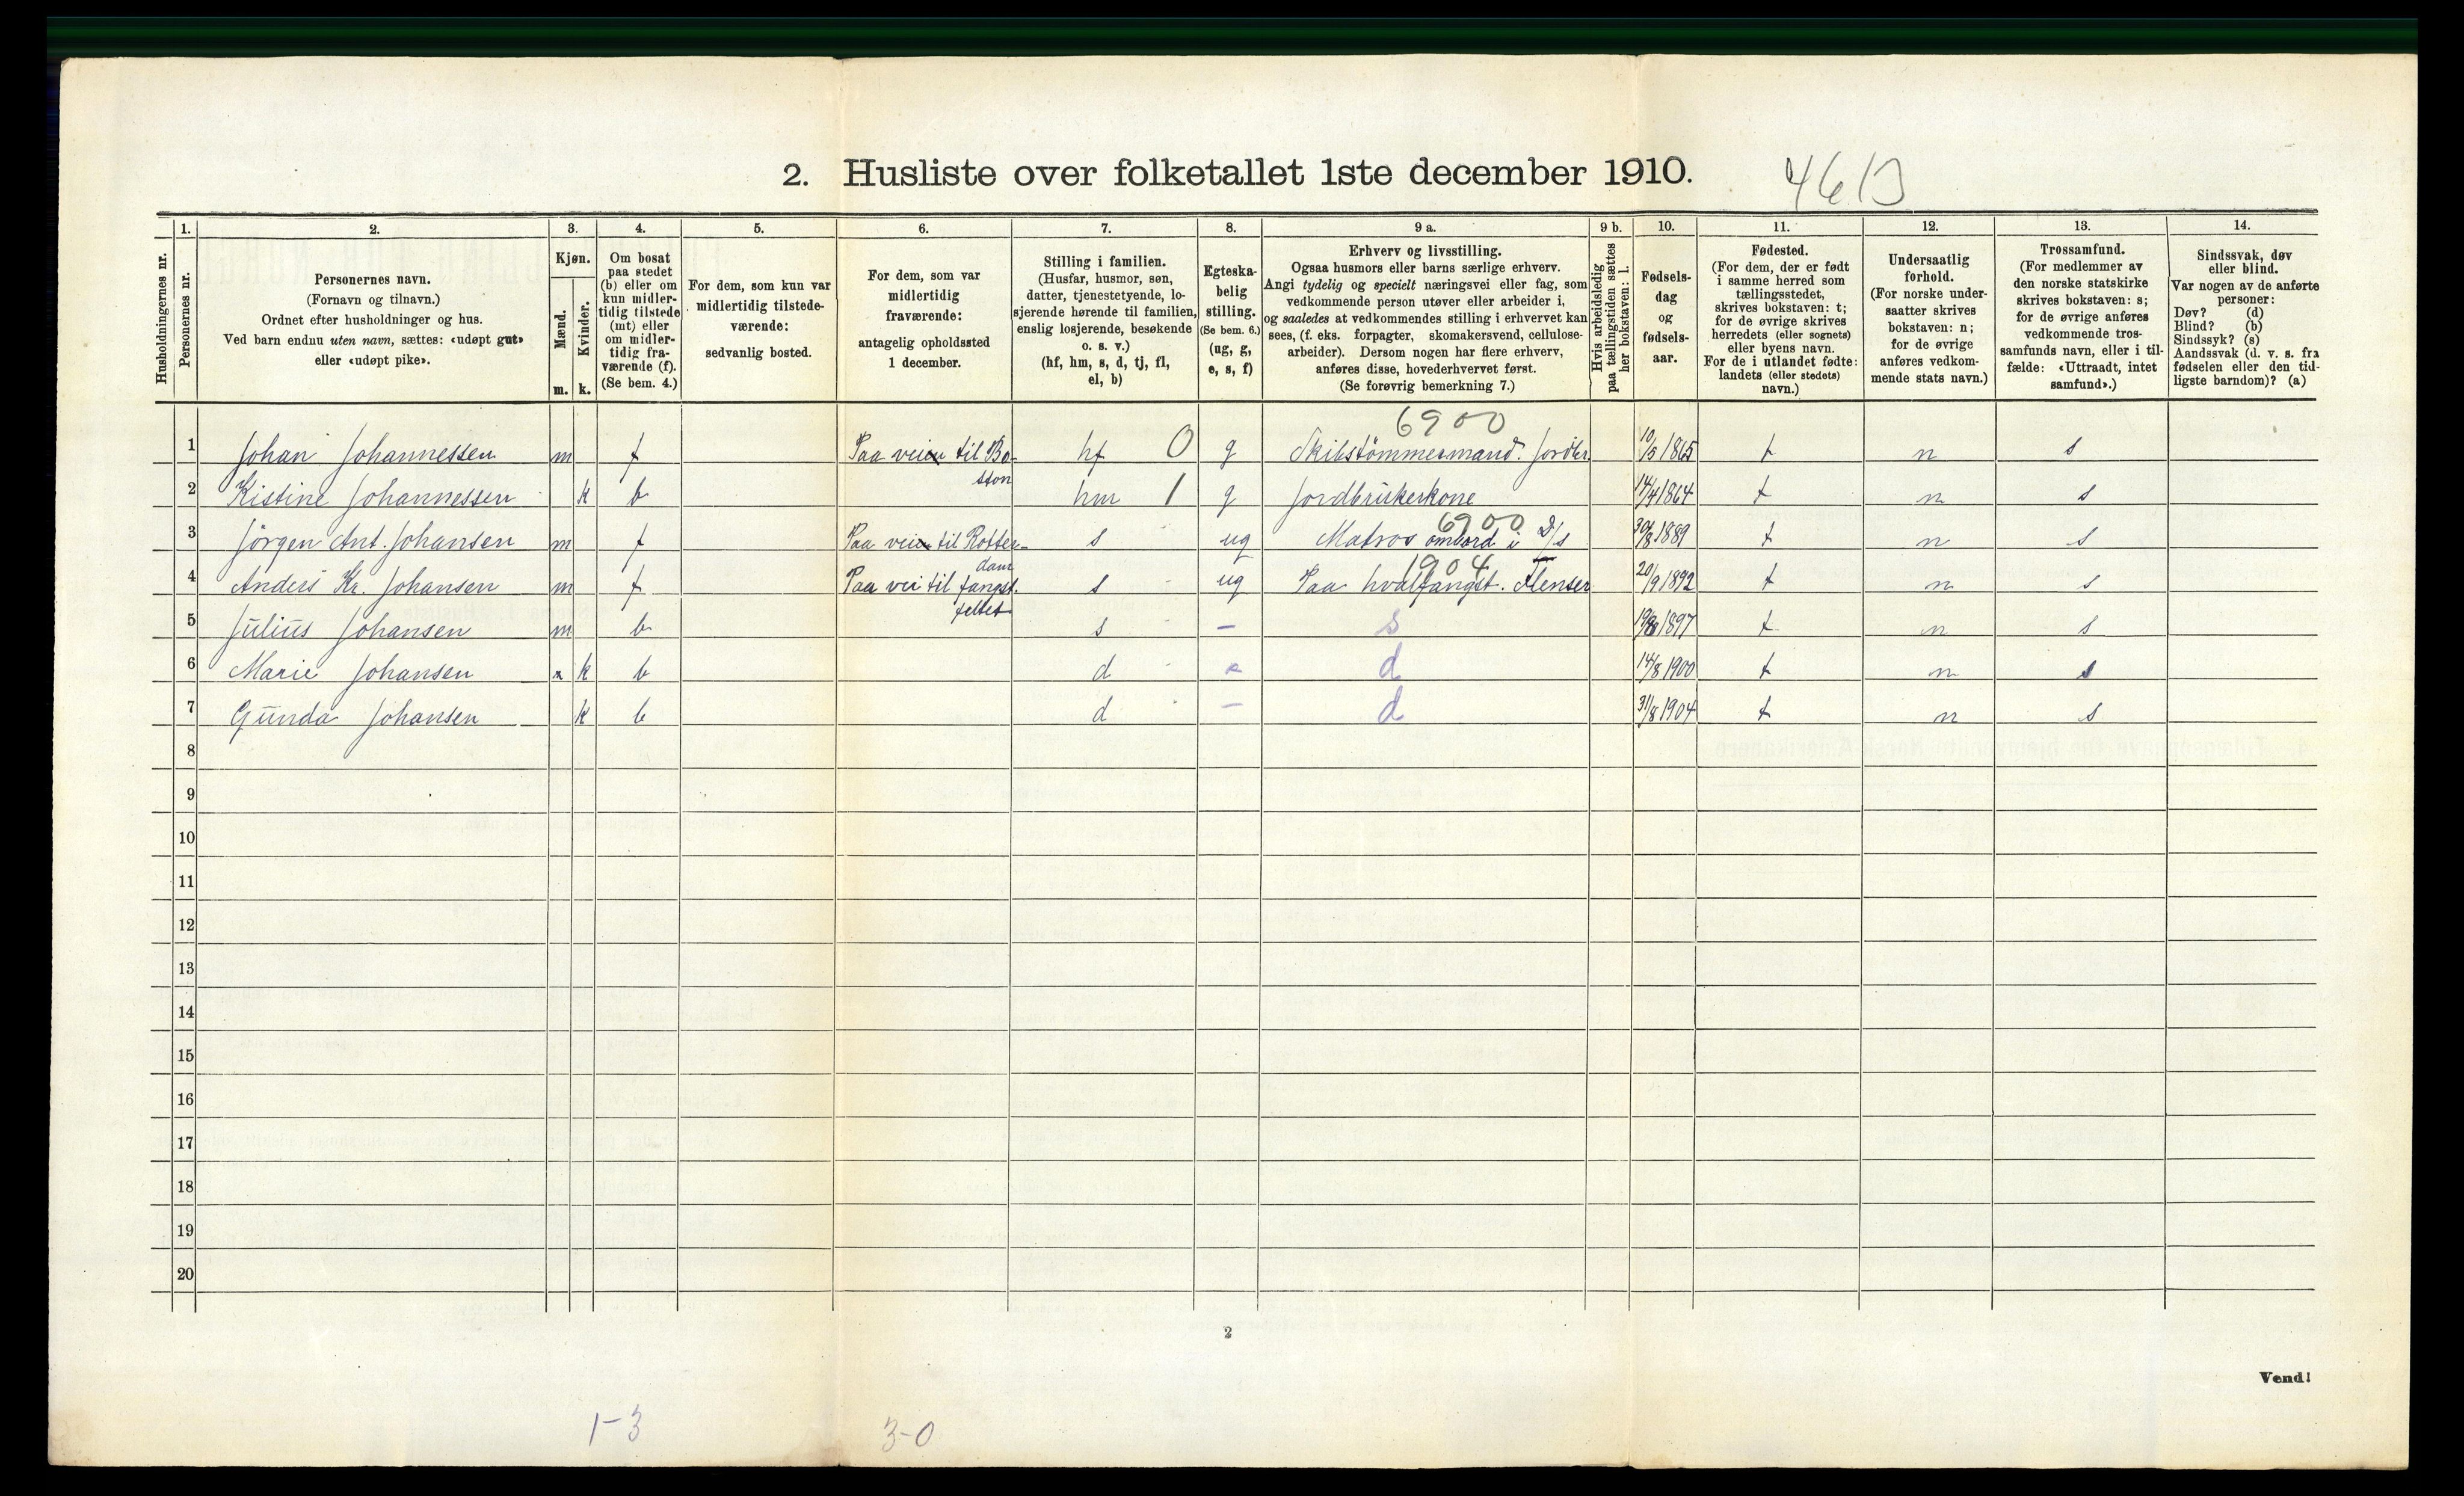 2. Husliste over folketallet 1ste december 1910.
4613
Husholdningernes nr.
1.
Personernes nr.
2.
Personernes navn.
(Fornavn og tilnavn.)
Ordnet efter husholdninger og hus.
Ved barn endnu uten navn, sættes: «udøpt gut»
eller «udøpt pike».
3.
Kjøn.
Mænd.
Kvinder.
m. k.
4.
Om bosat
paa stedet
(b) eller om
kun midler-
tidig tilstede
(mt) eller
om midler-
tidig fra-
værende (f).
(Se bem. 4.)
5.
For dem, som kun var
midlertidig tilstede-
værende:
sedvanlig bosted.
6.
For dem, som var
midlertidig
fraværende:
antagelig opholdssted
1 december.
7.
Stilling i familien.
(Husfar, husmor, søn,
datter, tjenestetyende, lo-
sjerende hørende til familien,
enslig losjerende, besøkende
o. s. v.)
(hf, hm, s, d, tj, fl,
el, b)
8.
Egteska-
belig
stilling.
(Se bem. 6.)
(ug, g,
e, s, f)
9 a.
Erhverv og livsstilling.
Ogsaa husmors eller barns særlige erhverv.
Angi tydelig og specielt næringsvei eller fag, som
vedkommende person utøver eller arbeider i,
og saaledes at vedkommendes stilling i erhvervet kan
sees, (f. eks. forpagter, skomakersvend, cellulose-
arbeider). Dersom nogen har flere erhverv,
anføres disse, hovederhvervet først.
(Se forøvrig bemerkning 7.)
9 b.
Hvis arbeidsledig
paa tællingstiden sættes
her bokstaven: l.
10.
Fødsels-
dag
og
fødsels-
aar.
11.
Fødested.
(For dem, der er født
i samme herred som
tællingsstedet,
skrives bokstaven: t;
for de øvrige skrives
herredets (eller sognets)
eller byens navn.
For de i utlandet fødte:
landets (eller stedets)
navn.)
12.
Undersaatlig
forhold.
(For norske under-
saatter skrives
bokstaven: n;
for de øvrige
anføres vedkom-
mende stats navn.)
13.
Trossamfund.
(For medlemmer av
den norske statskirke
skrives bokstaven: s;
for de øvrige anføres
vedkommende tros-
samfunds navn, eller i til-
fælde: «Uttraadt, intet
samfund».)
14.
Sindssvak, døv
eller blind.
Var nogen av de anførte
personer:
Døv? (d)
Blind? (b)
Sindssyk? (s)
Aandssvak (d. v. s. fra
fødselen eller den tid-
ligste barndom)? (a)
6900
1 Johan Johannessen m f Paa veien til Bo- hf 0 g Skibstömmermand. Jordbr. 10/5 1865 t n s
ston
2 Kistine Johannessen k b hm 1 g Jordbrukerkone 14/4 1864 t n s
6900
3 Jörgen Ant. Johansen m f Paa veien til Rotter- s ug Matros ombord i D/s 30/8 1889 t n s
dam 1904
4 Anders Kr. Johansen m f Paa vei til fangst- s ug Paa hvalfangst. Flenser 20/9 1892 t n s
feltet
5 Julius Johansen m b s – s 1897 t n s
6 Marie Johansen k b d - d 14/8 1900 t n s
7 Gunda Johansen k b d – d 31/8 1904 t n s
8
9
10
11
12
13
14
15
16
17
18
19
20
2
Vend!
1-3 3-0